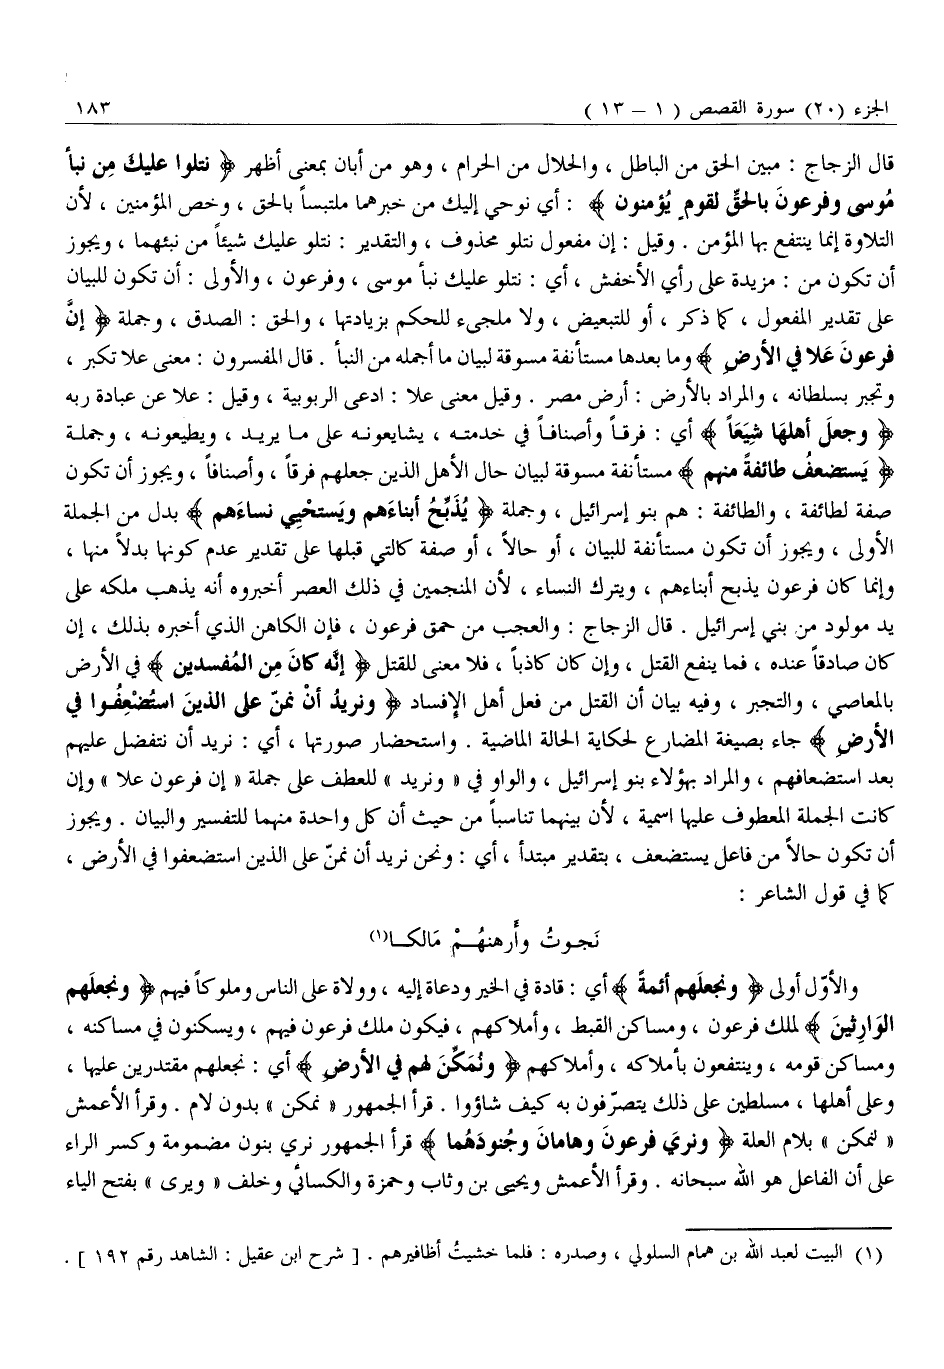 الجزء (٢٠) سورة القصص ( ١ – ١٣ ) ١٨٣
قال الزجاج : مبين الحق من الباطل ، والحلال من الحرام ، وهو من أبان بمعنى أظهر ﴿ نتلوا عليكَ مِن نبأ
مُوسى وفرعونَ بالحقِّ لقومٍ يُؤمنون ﴾ : أي نوحي إليك من خبرهما ملتبساً بالحق ، وخص المؤمنين ، لأن
التلاوة إنما ينتفع بها المؤمن . وقيل : إن مفعول نتلو محذوف ، والتقدير : نتلو عليك شيئاً من نبئهما ، ويجوز
أن تكون من : مزيدة على رأي الأخفش ، أي : نتلو عليك نبأ موسى ، وفرعون ، والأولى : أن تكون للبيان
على تقدير المفعول ، كما ذكر ، أو للتبعيض ، ولا ملجىء للحكم بزيادتها ، والحق : الصدق ، وجملة ﴿ إنَّ
فرعونَ عَلا في الأرضِ ﴾ وما بعدها مستأنفة مسوقة لبيان ما أجمله من النبأ . قال المفسرون : معنى علا تكبر ،
وتجبر بسلطانه ، والمراد بالأرض : أرض مصر . وقيل معنى علا : ادعى الربوبية ، وقيل : علا عن عبادة ربه
﴿ وجعلَ أهلهَا شِيَعَاً ﴾ أي : فرقاً وأصنافاً في خدمته ، يشايعونه على ما يريد ، ويطيعونه ، وجملة
﴿ يَستضعفُ طائفةً منهم ﴾ مستأنفة مسوقة لبيان حال الأهل الذين جعلهم فرقاً ، وأصنافاً ، ويجوز أن تكون
صفة لطائفة ، والطائفة : هم بنو إسرائيل ، وجملة ﴿ يُذَبِّحُ أبناءَهم ويَستحْيِي نساءَهم ﴾ بدل من الجملة
الأولى ، ويجوز أن تكون مستأنفة للبيان ، أو حالاً ، أو صفة كالتي قبلها على تقدير عدم كونها بدلاً منها ،
وإنما كان فرعون يذبح أبناءهم ، ويترك النساء ، لأن المنجمين في ذلك العصر أخبروه أنه يذهب ملكه على
يد مولود من بني إسرائيل . قال الزجاج : والعجب من حمق فرعون ، فإن الكاهن الذي أخبره بذلك ، إن
كان صادقاً عنده ، فما ينفع القتل ، وإن كان كاذباً ، فلا معنى للقتل ﴿ إنَّه كانَ مِن المُفسدين ﴾ في الأرض
بالمعاصي ، والتجبر ، وفيه بيان أن القتل من فعل أهل الإفساد ﴿ ونريدُ أنْ نمنّ على الذينَ استُضْعِفُوا في
الأرضِ ﴾ جاء بصيغة المضارع لحكاية الحالة الماضية . واستحضار صورتها ، أي : نريد أن نتفضل عليهم
بعد استضعافهم ، والمراد بهؤلاء بنو إسرائيل ، والواو في « ونريد » للعطف على جملة « إن فرعون علا » وإن
كانت الجملة المعطوف عليها اسمية ، لأن بينهما تناسباً من حيث أن كل واحدة منهما للتفسير والبيان . ويجوز
أن تكون حالاً من فاعل يستضعف ، بتقدير مبتدأ ، أي : ونحن نريد أن نمنّ على الذين استضعفوا في الأرض ،
كما في قول الشاعر :
نَجوتُ وأَرهنهُـمْ مَالكـا(١)
والأوّل أولى ﴿ ونجعلَهم أئمةً ﴾ أي : قادة في الخير ودعاة إليه ، وولاة على الناس وملوكاً فيهم ﴿ ونجعلَهم
الوَارِثينَ ﴾ لملك فرعون ، ومساكن القبط ، وأملاكهم ، فيكون ملك فرعون فيهم ، ويسكنون في مساكنه ،
ومساكن قومه ، وينتفعون بأملاكه ، وأملاكهم ﴿ ونُمَكِّنَ لهم في الأرضِ ﴾ أي : نجعلهم مقتدرين عليها ،
وعلى أهلها ، مسلطين على ذلك يتصرّفون به كيف شاؤوا . قرأ الجمهور « نمكن » بدون لام . وقرأ الأعمش
« لنمكن » بلام العلة ﴿ ونريَ فرعونَ وهامانَ وجُنودَهُما ﴾ قرأ الجمهور نري بنون مضمومة وكسر الراء
على أن الفاعل هو الله سبحانه . وقرأ الأعمش ويحيى بن وثاب وحمزة والكسائي وخلف « ويرى » بفتح الياء
(١) البيت لعبد الله بن همام السلولي ، وصدره : فلما خشيتُ أظافيرهم . [ شرح ابن عقيل : الشاهد رقم ١٩٢ ] .